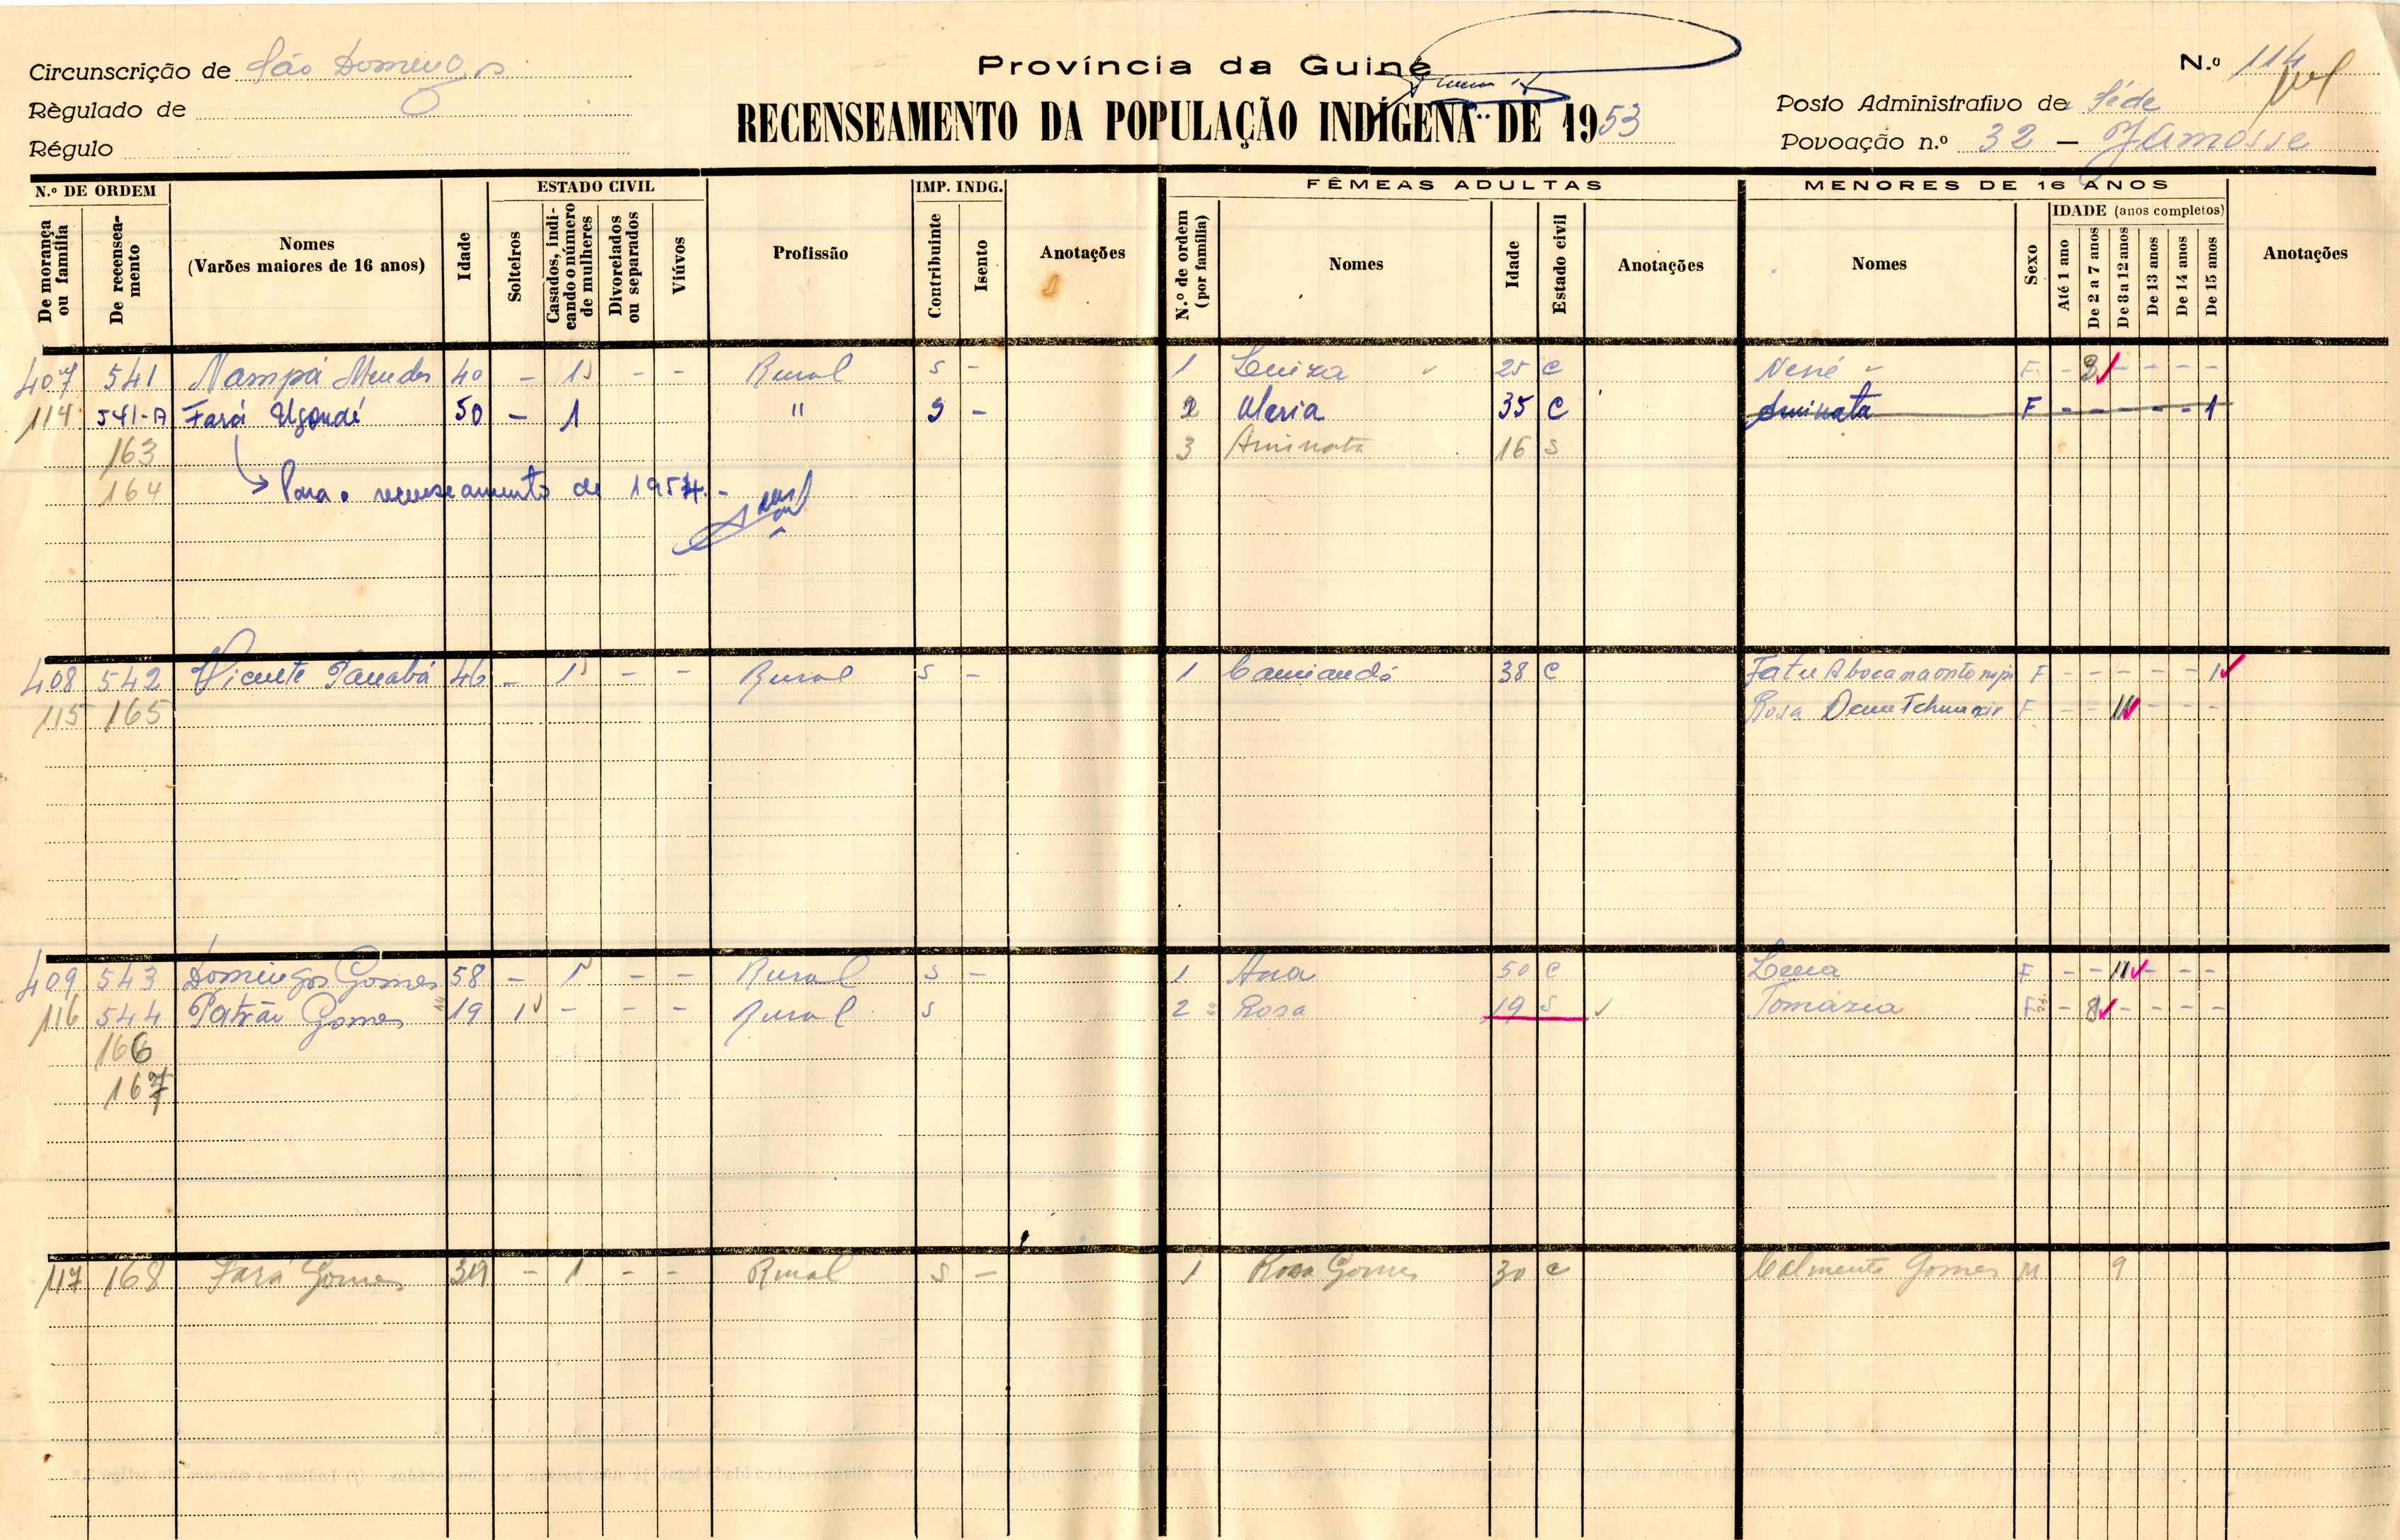 Província da Guiné
RECENSEAMENTO DA POPULAÇÃO INDÍGENA DE 1953
Circunscrição de São Domingos
Règulado de
Régulo
N.º 114
Posto Administrativo de Séde
Povoação n.º 32 — Jamosse
N.º DE ORDEM
De morança ou família
De recenseamento
Nomes
(Varões maiores de 16 anos)
Idade
ESTADO CIVIL
Solteiros
Casados, indicando o número de mulheres
Divorciados ou separados
Viúvos
Profissão
IMP. INDG.
Contribuinte
Isento
Anotações
FÊMEAS ADULTAS
N.º de ordem (por família)
Nomes
Idade
Estado civil
Anotações
MENORES DE 16 ANOS
Nomes
Sexo
IDADE (anos completos)
Até 1 ano
De 2 a 7 anos
De 8 a 12 anos
De 13 anos
De 14 anos
De 15 anos
Anotações
407 541 Nampá Mendes 40 - 1 - - Rural S - 1 Luiza 25 C Nené F - 3 - - - -
114 541-A Fará Ugondé 50 - 1 " S - 2 Maria 35 C Aminata F - - - - - 1
163 3 Aminata 16 S
164 Para o recenseamento de 1954.-
408 542 Vicente Panabá 46 - 1 - - Rural S - 1 38 C Fatu F - - - - - 1
115 165 Rosa F - - 11 - - -
409 543 Domingos Gomes 58 - 1 - - Rural S - 1 Ana 50 C Lena F - - 11 - - -
116 544 Patrão Gomes 19 1 - - - Rural S 2 Rosa 19 S Tomázia F - 8 - - - -
166
167
117 168 Fará Gomes 39 - 1 - - Rural S - 1 Rosa Gomes 30 C Gomes M 9